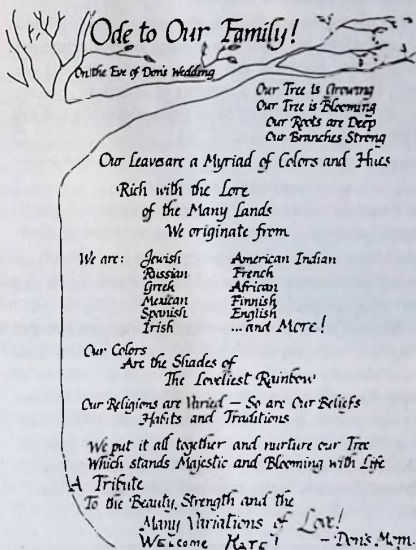 Ode to Our Family!
On the Eve of Don's Wedding
Our Tree is Growing
Our Tree is Blooming
Our Roots are Deep
Our Branches Strong
Our Leaves are a Myriad of Colors and Hues
Rich with the Lore
of the Many Lands
We originate from
We are: Jewish American Indian
Russian French
Greek African
Mexican Finnish
Spanish English
Irish ...and More!
Our Colors
Are the Shades of
The Loveliest Rainbow
Our Religions are Varied – So are Our Beliefs
Habits and Traditions
We put it all together and nurture our Tree
Which stands Majestic and Blooming with Life
A Tribute
To the Beauty, Strength and the
Many Variations of Love!
Welcome Marc! – Don's Mom